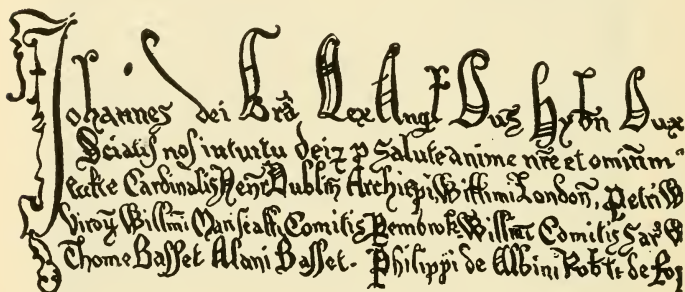 Johannes dei Grã Rex Angl Dns Hybñ Dux
Sciatis nos intuitu dei ⁊ p salute anime nre et ominm
eccte Cardinalis Henr Dublin Archiepi Willimi London, Petri W
viroȝ Willmi Marscalli Comitis Pembrok Willmi Comitis Sar W
Thome Basset Alani Basset. Philippi de Albini Robti de